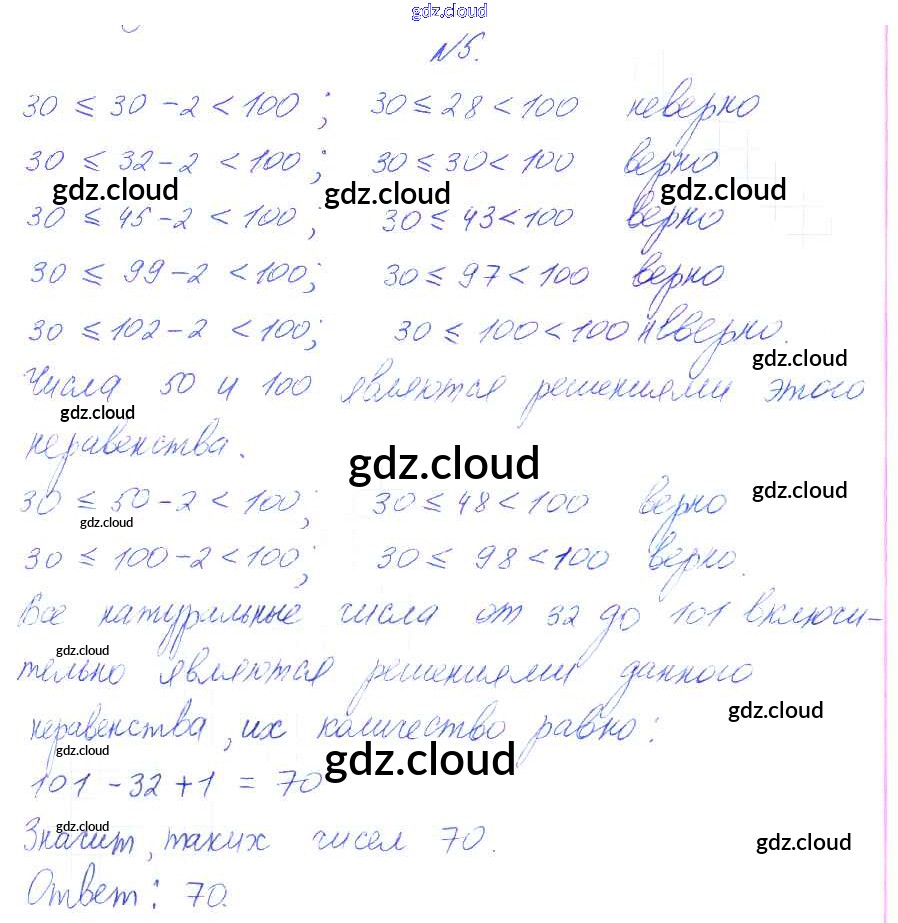 gdz.cloud
N5.
30 ≤ 30 - 2 < 100; 30 ≤ 28 < 100 неверно
30 ≤ 32 - 2 < 100; 30 ≤ 30 < 100 верно
gdz.cloud gdz.cloud gdz.cloud
30 ≤ 45 - 2 < 100; 30 ≤ 43 < 100 верно
30 ≤ 99 - 2 < 100; 30 ≤ 97 < 100 верно
30 ≤ 102 - 2 < 100; 30 ≤ 100 < 100 неверно.
gdz.cloud
Числа 50 и 100 являются решениями этого
gdz.cloud
неравенства.
gdz.cloud
gdz.cloud
30 ≤ 50 - 2 < 100; 30 ≤ 48 < 100 верно
gdz.cloud
30 ≤ 100 - 2 < 100; 30 ≤ 98 < 100 верно.
Все натуральные числа от 32 до 101 включи-
gdz.cloud
тельно являются решениями данного
gdz.cloud
неравенства, их количество равно:
gdz.cloud
gdz.cloud
101 - 32 + 1 = 70
gdz.cloud
Значит, таких чисел 70.
gdz.cloud
Ответ: 70.